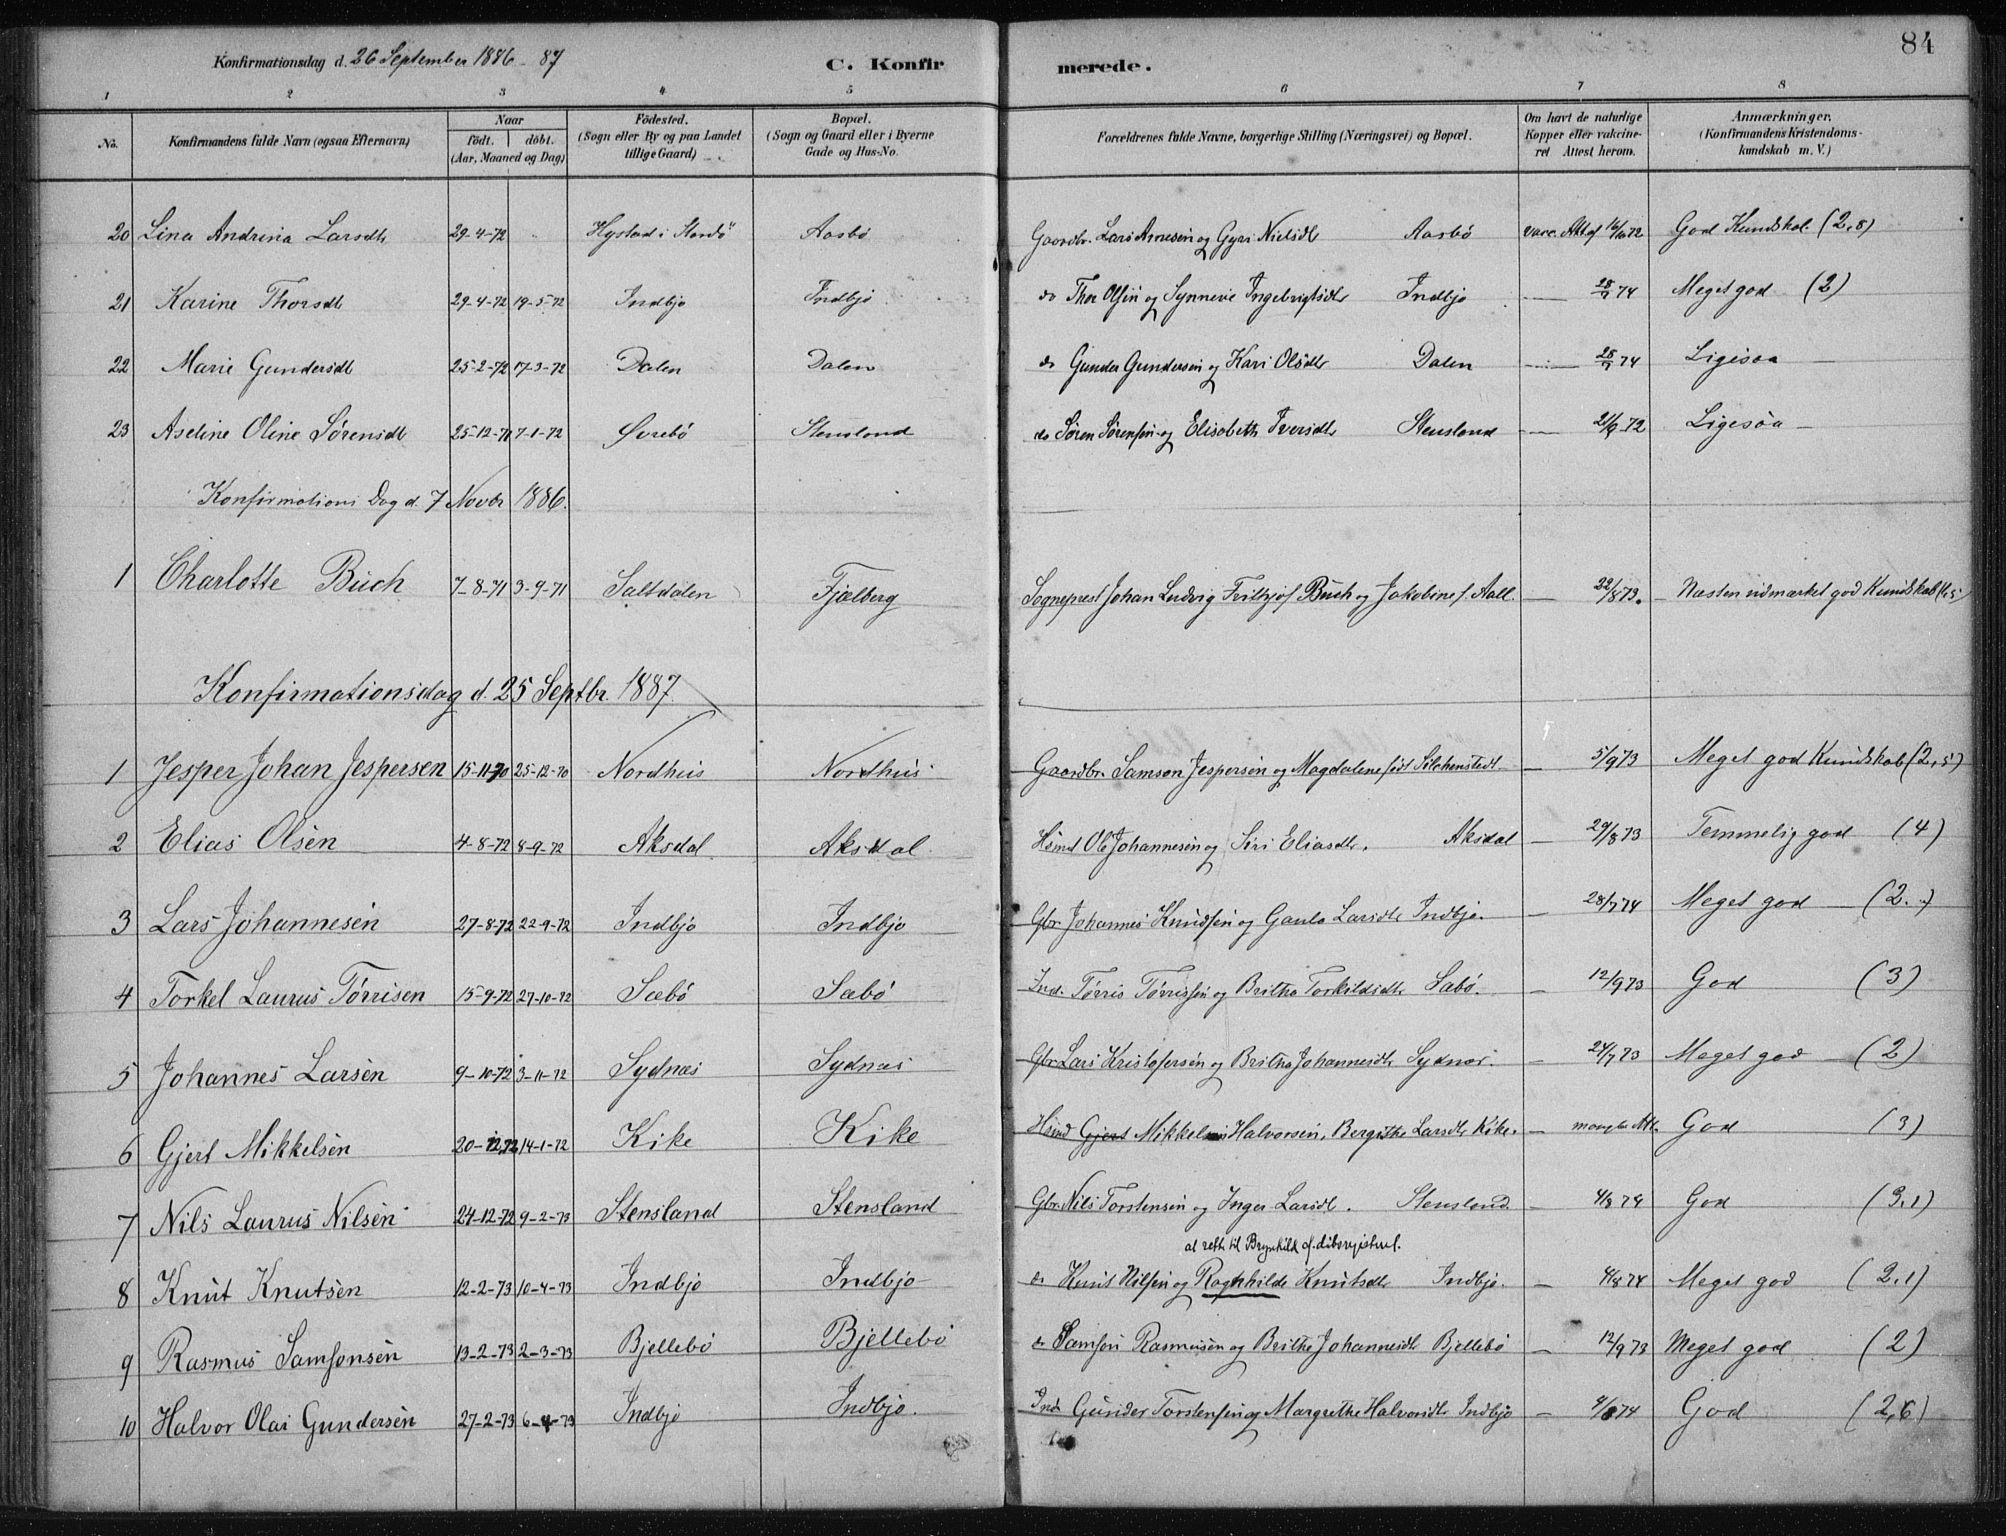 84
Konfirmationsdag d. 26 September 1886-87 C. Konfirmerede.
1 2 3 4 5 6 7 8
No. Konfirmandens fulde Navn (ogsaa Efternavn) Naar födt. döbt. (Aar, Maaned og Dag) Födested. (Sogn eller By og paa Landet tillige Gaard) Bopæl. (Sogn og Gaard eller i Byerne Gade og Hus-No. Forældrenes fulde Navne, borgerlige Stilling (Næringsvei) og Bopæl. Om havt de naturlige Kopper eller vakcineret Attest herom. Anmærkninger. (Konfirmandens Kristendomskundskab m. V.)
20 Lina Andrina Larsdtr 29-4-72 Hystad i Stordö Aasbö Gaardbr. Lars Arnesen og Gyri Nielsdtr Aasbö vacc. Att af 16/6 72 God Kundskab. (2,8)
21 Karine Thorsdtr 29-4-72 19-5-72 Indbjo Indbjo do Thor Olsen og Synneve Ingebrigtsdtr Indbjo — 28/7 74 Meget god (2)
22 Marie Gundersdtr 25-2-72 17-3-72 Dalen Dalen do Gunder Gundersen og Kari Olsdtr Dalen — 28/7 74 Ligesaa —
23 Aseline Oline Sörensdtr 25-12-71 7-1-72 Örebö Stensland do Sören Sörensen og Elisabeth Iversdtr Stensland — 21/9 72 Ligesaa —
Konfirmations Dag d. 7 Novbr 1886.
1 Charlotte Buch 7-8-71 3-9-71 Saltdalen Fjælberg Sogneprest Johan Ludvig Frithjof Buch og Jakobine f. Aall. — 22/8 73. Næsten udmærket god Kundskab (1,5)
Konfirmationsdag d. 25 Septbr. 1887.
1 Jesper Johan Jespersen 15-11-70 25-12-70 Nordhus Nordhus Gaardbr. Samson Jespersen og Magdalene født — 5/9 73 Meget god Kundskab (2,5)
2 Elias Olsen 4-8-72 8-9-72 Aksdal Aksdal Hsmd Ole Johannesen og Siri Eliasdtr. Aksdal — 29/8 73 Temmelig god (4)
3 Lars Johannesen 27-8-72 22-9-72 Indbjo Indbjo Gbr Johannes Knudsen og Gaula Larsdtr Indbjo. — 28/7 74 Meget god (2.)
4 Torkel Laurus Törrisen 15-9-72 27-10-72 Sæbö Sæbö Ind. Törris Törrissen og Britha Torkildsdtr Sæbö. — 12/9 73 God (3)
5 Johannes Larsen 9-10-72 3-11-72 Sydnæs Sydnæs Gbr Lars Kristofersen og Britha Johannesdtr Sydnæs. — 24/7 73 Meget god (2)
6 Gjert Mikkelsen 20-12-72 14-1-72 Kike Kike Hsmd Gjert Mikkel Halvorsen, Bergithe Larsdtr Kike. — mangler Att. God (3)
7 Nils Laurus Nilsen 24-12-72 9-2-73 Stensland Stensland Gbr. Nils Torstensen og Inger Larsdtr. Stensland — 4/8 74 God (3,1)
at rette til Brynhild cf. dåbsregisteret.
8 Knut Knutsen 12-2-73 10-4-73 Indbjo Indbjo do Knut Nilsen og Ragnhilde Knutsdtr Indbjo. — 4/8 74 Meget god (2,1)
9 Rasmus Samsonsen 13-2-73 2-3-73 Bjellebö Bjellebö do Samson Rasmusen og Brithe Johannesdtr Bjellebö — 12/9 73 Meget god (2)
10 Halvor Olai Gundersen 27-2-73 6-4-73 Indbjo Indbjo. Ind. Gunder Torstensen og Margrethe Halvorsdtr Indbjo — 4/8 74 God (2,6)